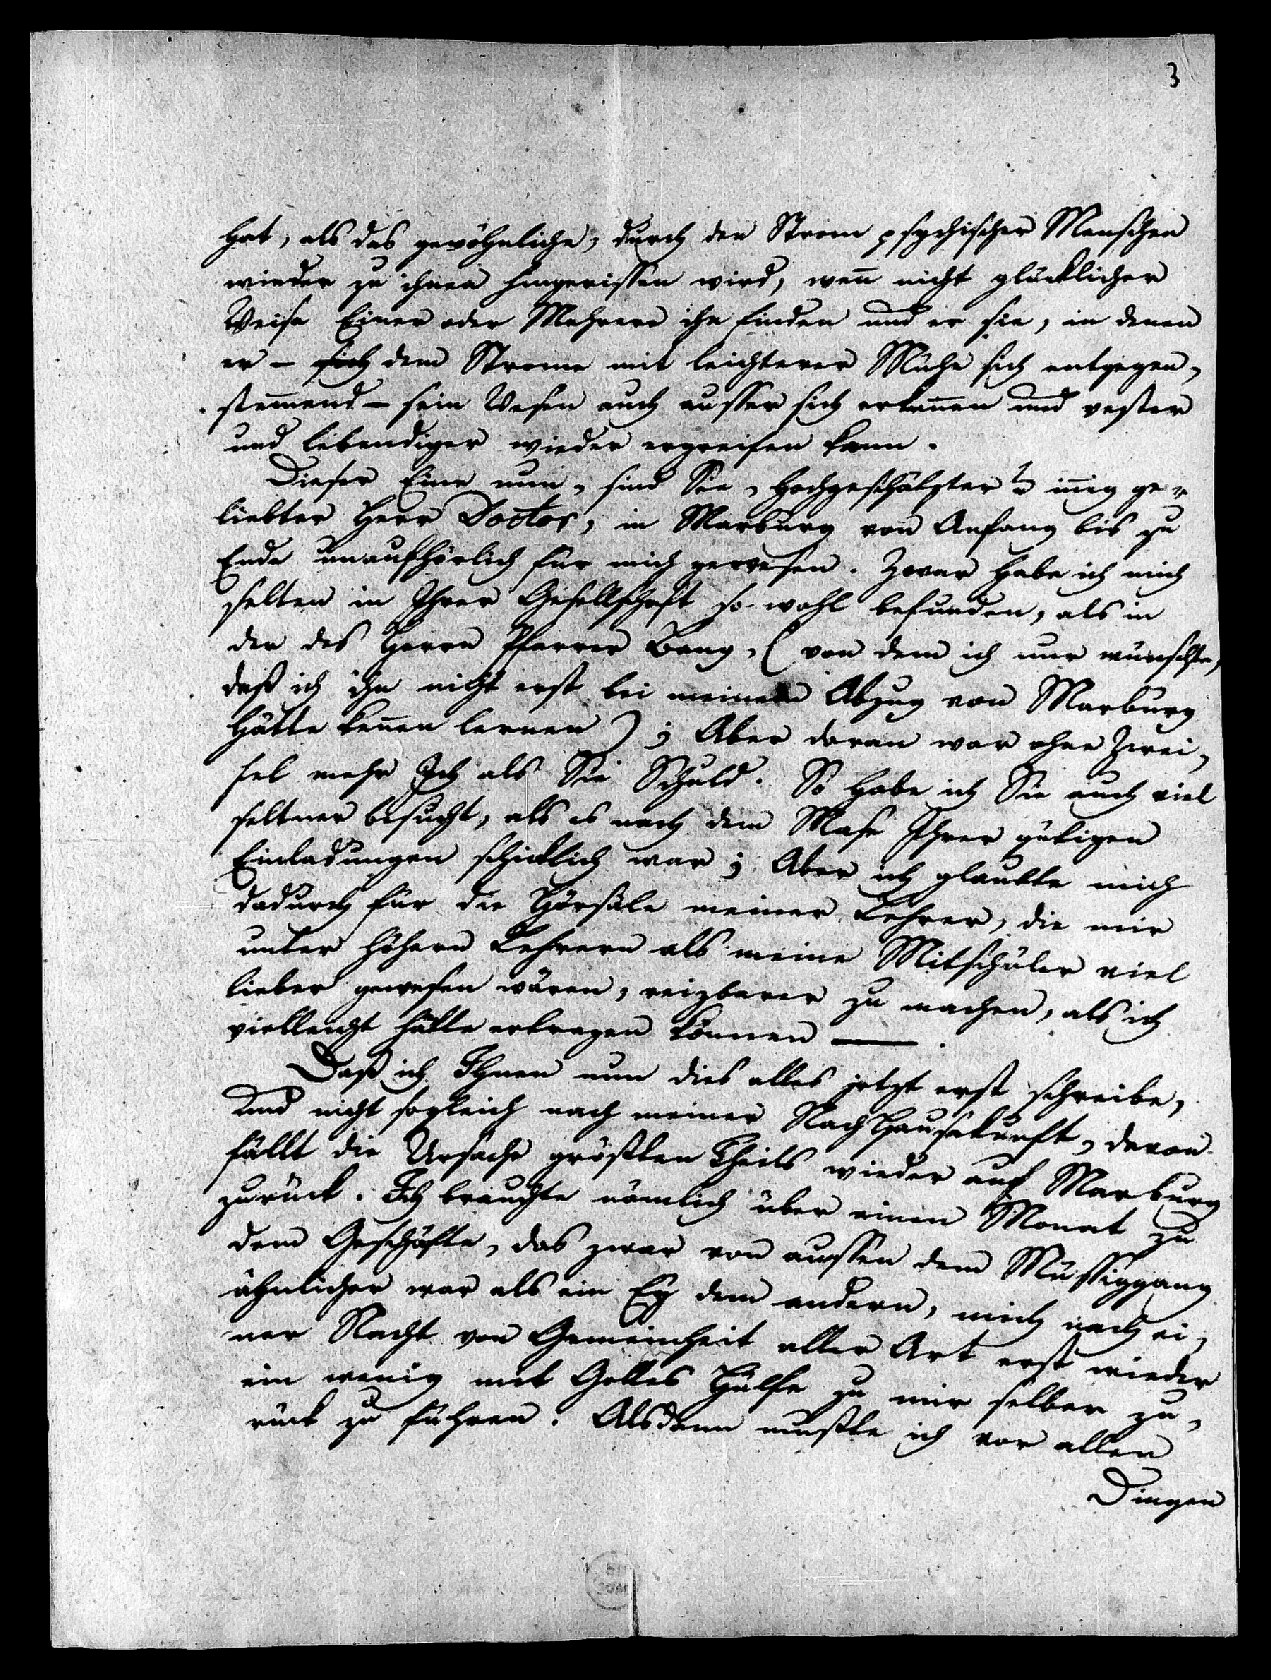 3
hat, als das gewöhnliche, durch den Strom psychischer Menschen
wieder zu ihnen hingerissen wird, wen̅ nicht glücklicher
Weise Einer oder Mehrere ihn finden und er sie, in denen
er – sich dem Strome mit leichterer Mühe sich entgegen-
stem̅end – sein Wesen auch ausser sich erken̅en und vester
und lebendiger wieder ergreifen kann.
Dieser Eine nun, sind Sie, Hochgeschätzter u in̅ig ge-
liebter Herr Doctor, in Marburg von Anfang bis zu
Ende unaufhörlich für mich gewesen. Zwar habe ich mich
selten in Ihrer Gesellschaft so wohl befunden, als in
der des Herrn Pfarrer Bang, (von dem ich nur wünschte,
daß ich ihn nicht erst bei meinem Abzug von Marburg
hätte ken̅en lernen); Aber daran war ohne Zwei-
fel mehr Ich als Sie Schuld. So habe ich Sie auch viel
seltner besucht, als es nach dem Mase Ihrer gütigen
Einladungen schicklich war; Aber ich glaubte mich
dadurch für die Hörsäle meiner Lehrer, die mir
unter höhern Lehrern als meine Mitschüler viel
lieber gewesen wären, reizbarer zu machen, als ich
vielleicht hätte ertragen können —.
Daß ich Ihnen nun dies alles jetzt erst schreibe,
und nicht sogleich nach meiner Nachhausekunft, davon
fällt die Ursache größten Theils wieder auf Marburg
zurück. Ich brauchte nämlich über einen Monat zu
dem Geschäfte, das zwar von aussen dem Müssiggang
ähnlicher war als ein Ey dem andern, mich nach ei-
ner Nacht von Gemeinheit aller Art erst wieder
ein wenig mit Gottes Hülfe zu mir selber zu-
rück zu führen. Alsdann mußte ich vor allen
Dingen